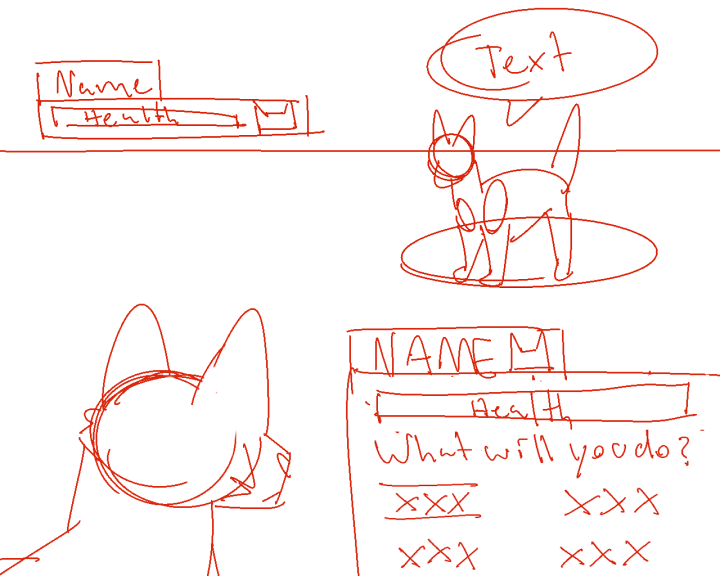 Name
Health
Text
NAME
Health
What will you do?
xxx xxx
xxx xxx